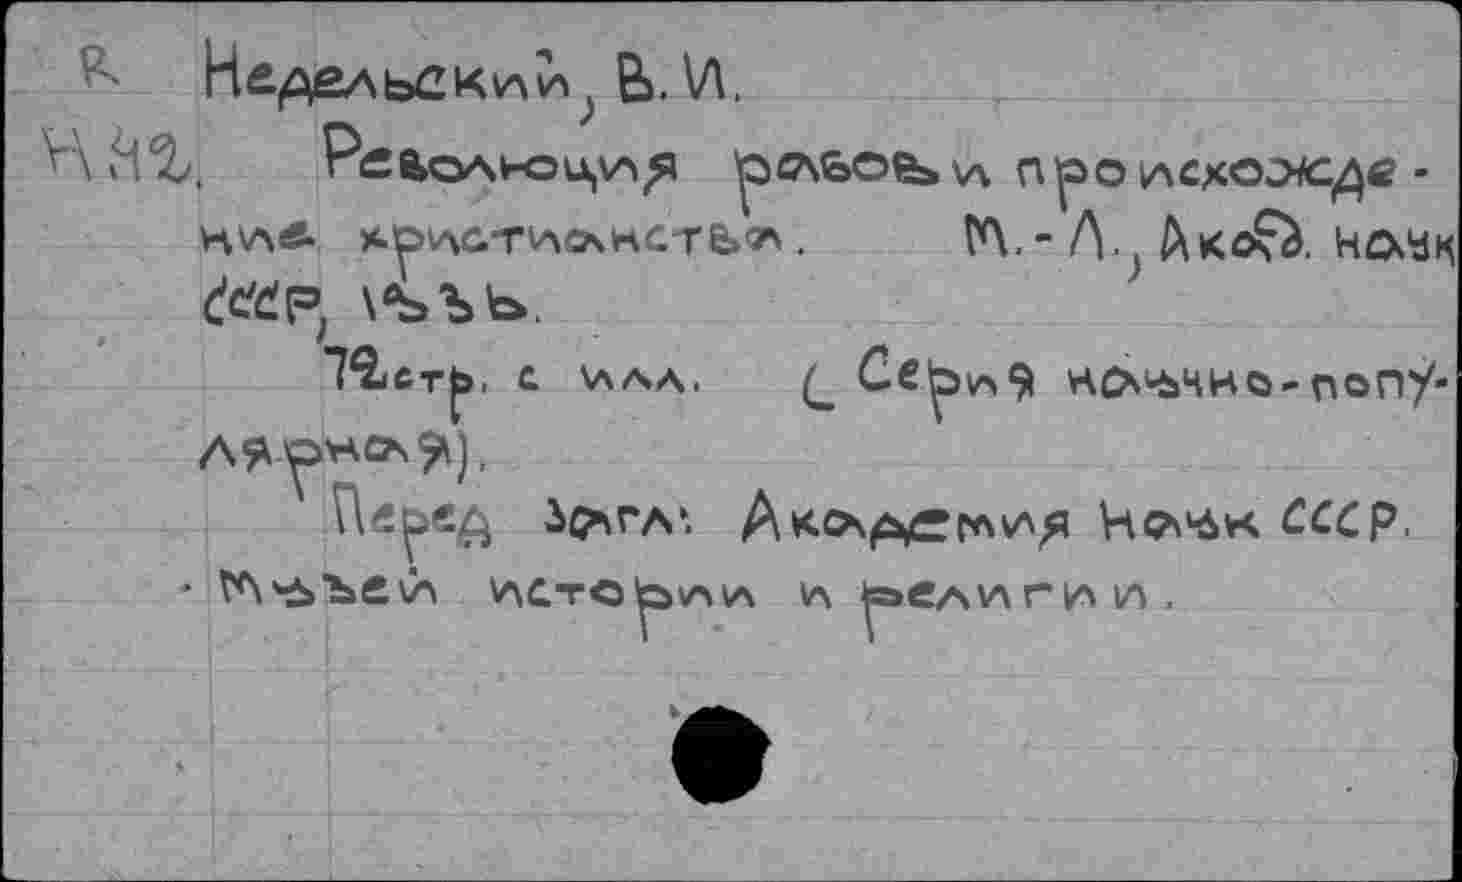 R Недельский, В. И.
Н 42. Революция рабов и происхожде-
ние христианства. М.-Л., Акад. наук
СССР, 1936.
72 стр. с илл. (Серия научно-попу-
лярная).
Перед загл: Академия Наук СССР.
Музей истории и религии.